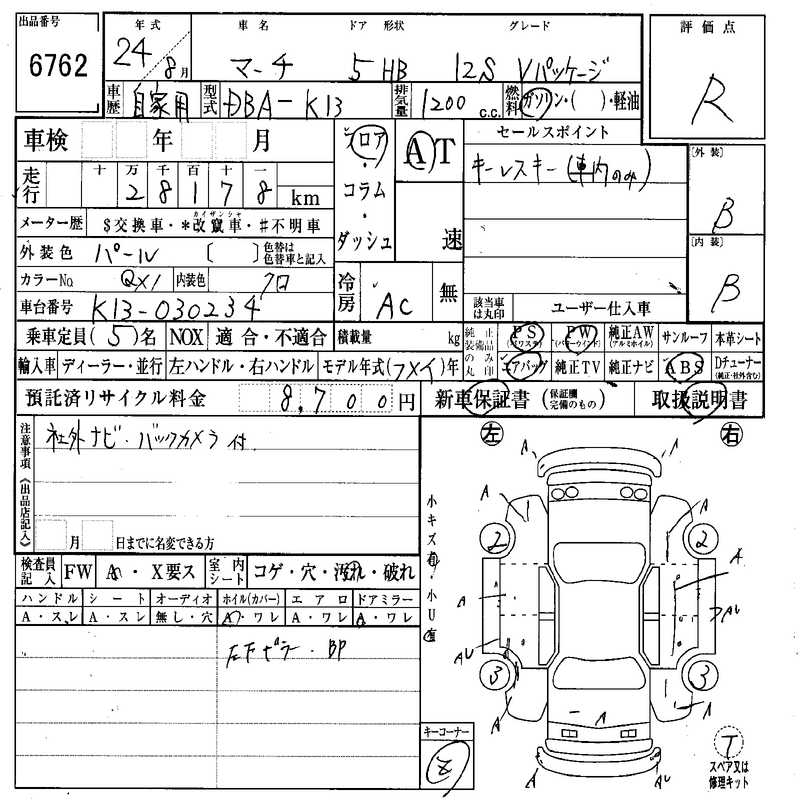 出品番号 年式 車名 ドア 形状 グレード 評価点
6762 24/8月 マーチ 5 HB 12S Vパッケージ R
車歴 自家用 型式 DBA-K13 排気量 1200 c.c. 燃料 ガソリン・( )・軽油
車検 年 月 フロア AT セールスポイント
・ キーレスキー(車内のみ) [外装]
走行 十 万 千 百 十 一 コラム B
2 8 1 7 8 km ・
メーター歴 $交換車・*改竄車・#不明車 カイザンシャ ダッシュ 速 [内装]
外装色 パール [ ] 色替は色替車と記入 B
カラーNo. QX1 内装色 クロ 冷房 AC 無
車台番号 K13-030234 該当車は丸印 ユーザー仕入車
乗車定員(5)名 NOX 適合・不適合 積載量 kg 純正装備品のみ丸印 PS(パワステ) PW(パワーウィンド) 純正AW(アルミホイル) サンルーフ 本革シート
輸入車 ディーラー・並行 左ハンドル・右ハンドル モデル年式( )年 エアバッグ 純正TV 純正ナビ ABS Dチューナー(純正・社外含む)
預託済リサイクル料金 8,700円 新車保証書(保証欄完備のもの) 取扱説明書
注意事項《出品店記入》 社外ナビ・バックカメラ付
左 右
月 日までに名変できる方
小キズ有・小U有
検査員記入 FW A・X要ス 室内シート コゲ・穴・汚れ・破れ
ハンドル シート オーディオ ホイル(カバー) エアロ ドアミラー
A・スレ A・スレ 無し・穴 A・ワレ A・ワレ A・ワレ
左下 ・BP
A A
A A
2 2
A A
AU AU
3 3
A A A
A AU
キーコーナー
Z
T
スペア又は
修理キット